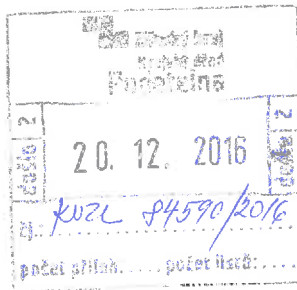 Podatelna
došlo
20. 12. 2016
došlo
čj. KUZL 84590/2016
počet příloh..... počet listů:.....